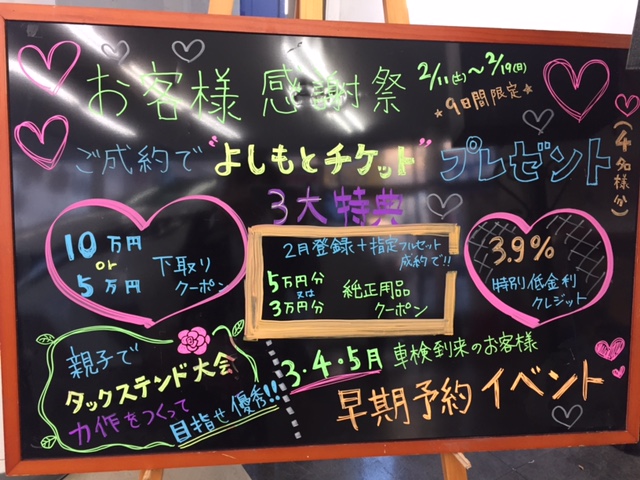 お客様 感謝祭 2/11(土)～2/19(日)
★9日間限定★
ご成約で "よしもとチケット" プレゼント
(4名様分)
3大特典
10万円
or
5万円
下取り
クーポン
2月登録＋指定フルセット
成約で!!
5万円分
又は
3万円分
純正用品
クーポン
3.9%
特別低金利
クレジット
親子で
タックステンド大会
力作をつくって
目指せ優秀!!
3・4・5月 車検到来のお客様
早期予約イベント